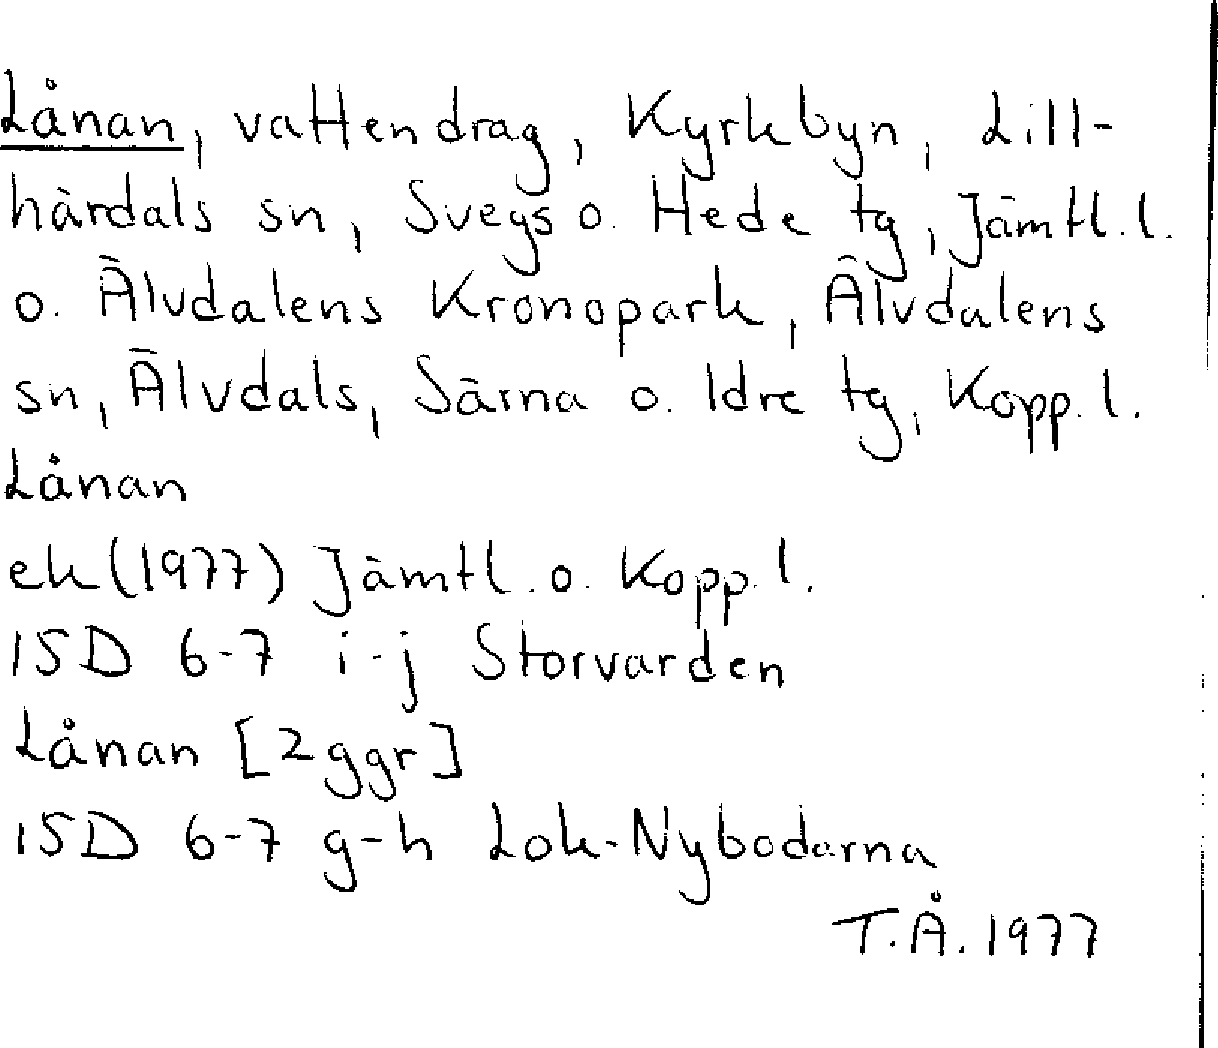 Lånan, vattendrag, Kyrkbyn, Lill-
härdals sn, Svegs o. Hede tg, Jämtl. l.
o. Älvdalens Kronopark, Älvdalens
sn, Älvdals, Särna o. Idre tg, Kopp. l.
Lånan
ek (1977) Jämtl. o. Kopp. l.
15D 6-7 i-j Storvarden
Lånan [2 ggr]
15D 6-7 g-h Lok-Nybodarna
T.Å. 1977